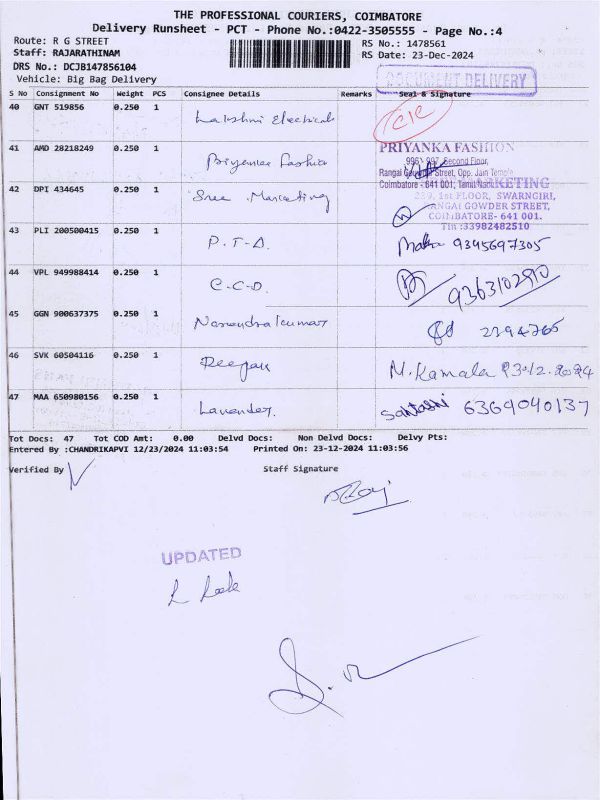 THE PROFESSIONAL COURIERS, COIMBATORE
Delivery Runsheet - PCT - Phone No.:0422-3505555 - Page No.:4
Route: R G STREET
RS No.: 1478561
Staff: RAJARATHINAM
RS Date: 23-Dec-2024
DRS No.: DCJB147856104
Vehicle: Big Bag Delivery
DOCUMENT DELIVERY
S No Consignment No Weight PCS Consignee Details Remarks Seal & Signature
40 GNT 519856 0.250 1 Lakshmi Electricals
41 AMD 28218249 0.250 1 Priyanka Fashion
PRIYANKA FASHION
996\997, Second Floor,
Rangai Gowder Street, Opp. Jain Temple
Coimbatore - 641 001, Tamil Nadu
42 DPI 434645 0.250 1 Sree Marketing
MARKETING
239, 1st FLOOR, SWARNGIRI,
RANGAI GOWDER STREET,
COIMBATORE- 641 001.
Tin :33982482510
43 PLI 200500415 0.250 1 P.T.A. 9345697305
44 VPL 949988414 0.250 1 C.C.D. 9363102910
45 GGN 900637375 0.250 1 Narendrakumar 2394765
46 SVK 60504116 0.250 1 Deepak M. Kamala 23.12.2024
47 MAA 650980156 0.250 1 Lavender. 6369040137
Tot Docs: 47 Tot COD Amt: 0.00 Delvd Docs: Non Delvd Docs: Delvy Pts:
Entered By :CHANDRIKAPVI 12/23/2024 11:03:54 Printed On: 23-12-2024 11:03:56
Verified By Staff Signature
UPDATED